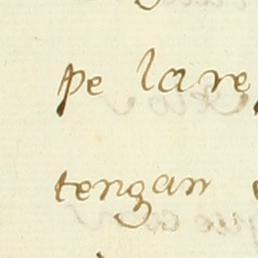 pe lare
tengan